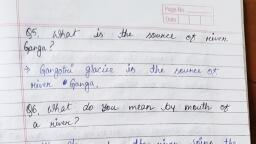 Page No
Date
Q5. What is the source of river
Ganga?
→ Gangotri glacier is the source of
river Ganga.
Q6. What do you mean by mouth of
a river?
the river joins the